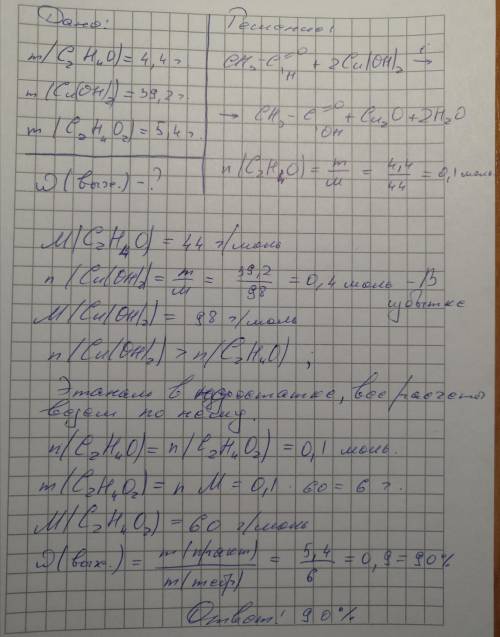 Дано:
m(C₂H₄O) = 4,4 г.
m(Cu(OH)₂) = 39,2 г.
m(C₂H₄O₂) = 5,4 г.
(вых.) - ?
Решение:
CH₃-C=O H + 2Cu(OH)₂ t→
→ CH₃-C=O OH + Cu₂O + 2H₂O
n(C₂H₄O) = m/M = 4,4/44 = 0,1 моль
M(C₂H₄O) = 44 г/моль
n(Cu(OH)₂) = m/M = 39,2/98 = 0,4 моль - В избытке
M(Cu(OH)₂) = 98 г/моль
n(Cu(OH)₂) > n(C₂H₄O);
Этаналь в недостатке, все расчеты
ведем по нему.
n(C₂H₄O) = n(C₂H₄O₂) = 0,1 моль.
m(C₂H₄O₂) = n M = 0,1 · 60 = 6 г.
M(C₂H₄O₂) = 60 г/моль
(вых.) = m(практ)/m(теор) = 5,4/6 = 0,9 = 90%
Ответ: 90%